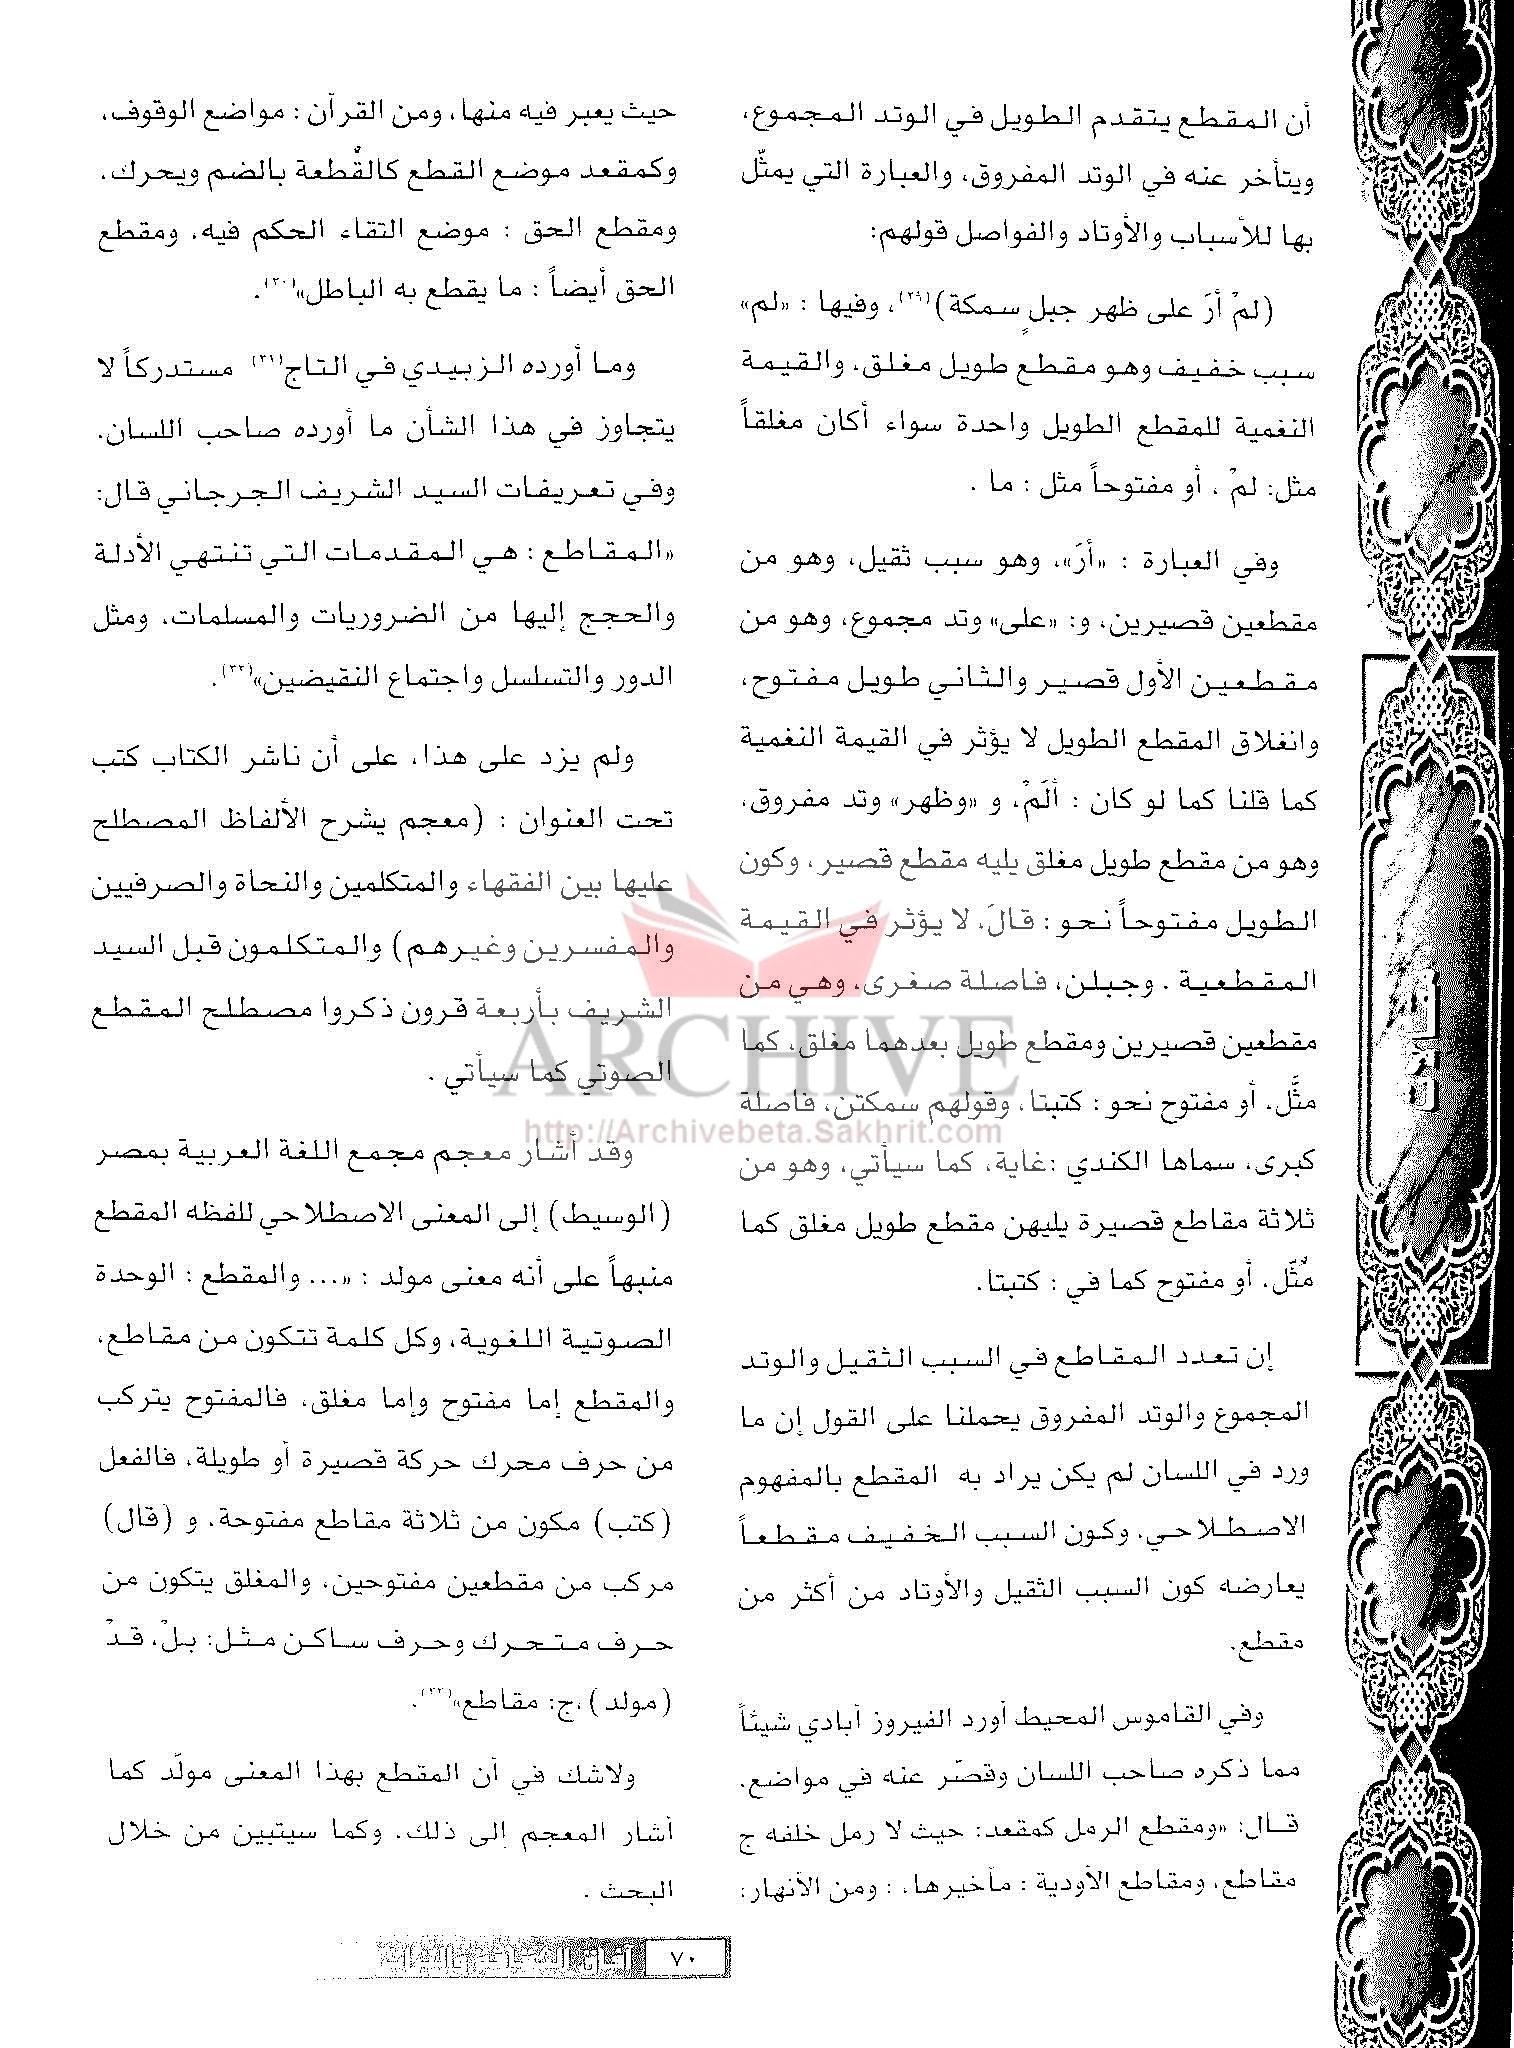 أن المقطع يتقدم الطويل في الوتد المجموع،
ويتأخر عنه في الوتد المفروق، والعبارة التي يمثّل
بها للأسباب والأوتاد والفواصل قولهم:
(لمْ أرَ على ظهر جبلٍ سمكة)(٢٩)، وفيها : «لم»
سبب خفيف وهو مقطع طويل مغلق، والقيمة
النغمية للمقطع الطويل واحدة سواء أكان مغلقاً
مثل: لمْ ، أو مفتوحاً مثل : ما .
وفي العبارة : «أرَ»، وهو سبب ثقيل، وهو من
مقطعين قصيرين، و: «على» وتد مجموع، وهو من
مقطعين الأول قصير والثاني طويل مفتوح،
وانغلاق المقطع الطويل لا يؤثر في القيمة النغمية
كما قلنا كما لو كان : ألَمْ، و «وظهر» وتد مفروق،
وهو من مقطع طويل مغلق يليه مقطع قصير، وكون
الطويل مفتوحاً نحو : قالَ، لا يؤثر في القيمة
المقطعية . وجبلن، فاصلة صغرى، وهي من
مقطعين قصيرين ومقطع طويل بعدهما مغلق، كما
مثَّل، أو مفتوح نحو : كتبتا، وقولهم سمكتن، فاصلة
كبرى، سماها الكندي :غاية، كما سيأتي، وهو من
ثلاثة مقاطع قصيرة يليهن مقطع طويل مغلق كما
مُثّل، أو مفتوح كما في : كتبتا.
إن تعدد المقاطع في السبب الثقيل والوتد
المجموع والوتد المفروق يحملنا على القول إن ما
ورد في اللسان لم يكن يراد به المقطع بالمفهوم
الاصطلاحي، وكون السبب الخفيف مقطعاً
يعارضه كون السبب الثقيل والأوتاد من أكثر من
مقطع.
وفي القاموس المحيط أورد الفيروز آبادي شيئاً
مما ذكره صاحب اللسان وقصّر عنه في مواضع.
قال: «ومقطع الرمل كمقعد: حيث لا رمل خلفه ج
مقاطع، ومقاطع الأودية : مآخيرها، : ومن الأنهار:
حيث يعبر فيه منها، ومن القرآن : مواضع الوقوف،
وكمقعد موضع القطع كالقُطعة بالضم ويحرك،
ومقطع الحق : موضع التقاء الحكم فيه، ومقطع
الحق أيضاً : ما يقطع به الباطل»(٣٠).
وما أورده الزبيدي في التاج(٣١) مستدركاً لا
يتجاوز في هذا الشأن ما أورده صاحب اللسان.
وفي تعريفات السيد الشريف الجرجاني قال:
«المقاطع : هي المقدمات التي تنتهي الأدلة
والحجج إليها من الضروريات والمسلمات، ومثل
الدور والتسلسل واجتماع النقيضين»(٣٢).
ولم يزد على هذا، على أن ناشر الكتاب كتب
تحت العنوان : (معجم يشرح الألفاظ المصطلح
عليها بين الفقهاء والمتكلمين والنحاة والصرفيين
والمفسرين وغيرهم) والمتكلمون قبل السيد
الشريف بأربعة قرون ذكروا مصطلح المقطع
الصوتي كما سيأتي .
وقد أشار معجم مجمع اللغة العربية بمصر
(الوسيط) إلى المعنى الاصطلاحي للفظه المقطع
منبهاً على أنه معنى مولد : «... والمقطع : الوحدة
الصوتية اللغوية، وكل كلمة تتكون من مقاطع،
والمقطع إما مفتوح وإما مغلق، فالمفتوح يتركب
من حرف محرك حركة قصيرة أو طويلة، فالفعل
(كتب) مكون من ثلاثة مقاطع مفتوحة، و (قال)
مركب من مقطعين مفتوحين، والمغلق يتكون من
حرف متحرك وحرف ساكن مثل: بلْ، قدْ
(مولد)،ج: مقاطع»(٣٣).
ولاشك في أن المقطع بهذا المعنى مولّد كما
أشار المعجم إلى ذلك، وكما سيتبين من خلال
البحث .
ARCHIVE
http://Archivebeta.Sakhrit.com
٧٠ آفاق الثقافة والتراث